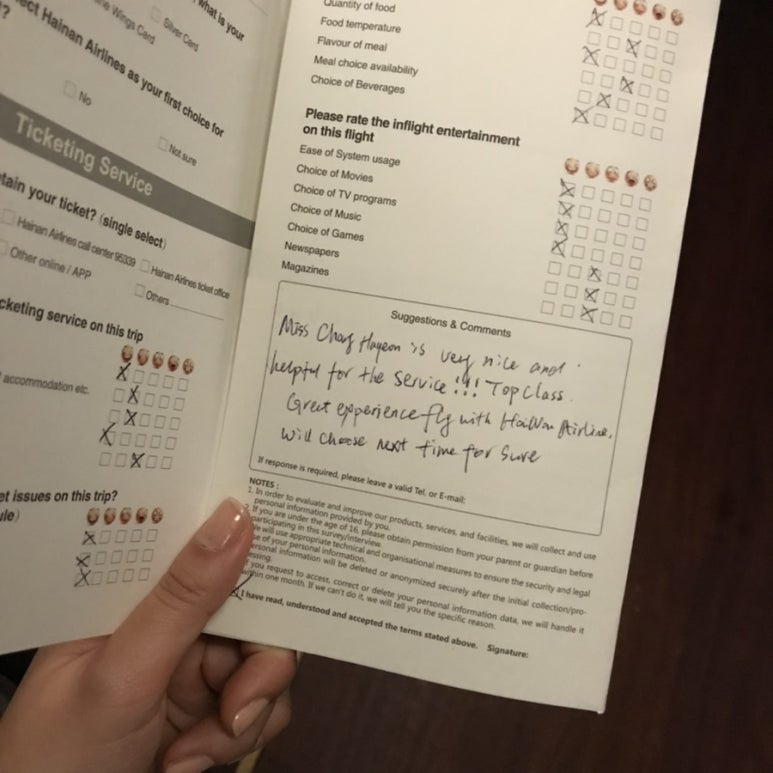 what is your
Wings Card
Silver Card
ect Hainan Airlines as your first choice for
?
No
Not sure
Ticketing Service
tain your ticket? (single select)
Hainan Airlines call center 95339
Hainan Airlines ticket office
Other online / APP
Others
cketing service on this trip
accommodation etc.
et issues on this trip?
ule)
Quantity of food
Food temperature
Flavour of meal
Meal choice availability
Choice of Beverages
Please rate the inflight entertainment
on this flight
Ease of System usage
Choice of Movies
Choice of TV programs
Choice of Music
Choice of Games
Newspapers
Magazines
Suggestions & Comments
Miss Hayeon is very nice and
helpful for the service!!! Top Class.
Great experience fly with Airline,
will choose next time for sure
If response is required, please leave a valid Tel. or E-mail:
NOTES :
1. In order to evaluate and improve our products, services, and facilities, we will collect and use
personal information provided by you.
2. If you are under the age of 16, please obtain permission from your parent or guardian before
participating in this survey/interview.
We will use appropriate technical and organisational measures to ensure the security and legal
use of your personal information.
ersonal information will be deleted or anonymized securely after the initial collection/pro-
essing.
you request to access, correct or delete your personal information data, we will handle it
within one month. If we can't do it, we will tell you the specific reason.
I have read, understood and accepted the terms stated above. Signature: